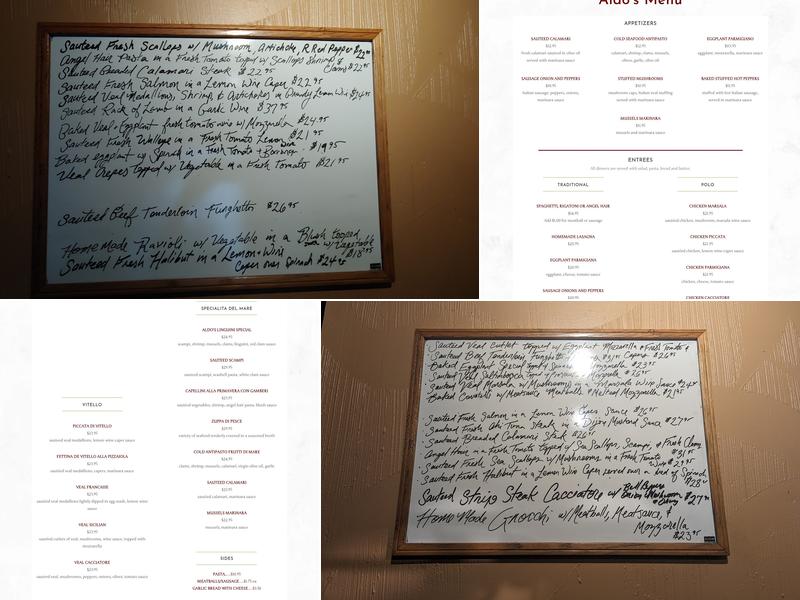 Sauteed Fresh Scallops w/ Mushroom, Artichoke, R Red Pepper
Angel Hair Pasta in a Fresh Tomato topped w/ Scallops Shrimp &
Clams $22.95
Sauteed Breaded Calamari Steak $22.95
Sauteed Fresh Salmon in a Lemon Wine Caper $22.95
Sauteed Veal Medallions, Shrimp, & Artichokes in Brandy Lemon Wine $24.95
Sauteed Rack of Lamb in a Garlic Wine $37.95
Baked Veal & Eggplant fresh tomato wine w/ Mozzarella $24.95
Sauteed Fresh Walleye in a Fresh Tomato Lemon Wine $21.95
Baked eggplant w/ Spinach in a Fresh Tomato $19.95
Veal Crepes topped w/ Vegetable in a Fresh Tomato $21.95
Sauteed Beef Tenderloin Funghetto $26.95
Home Made Ravioli w/ Vegetable in a Blush topped
w/ Vegetable $18.95
Sauteed Fresh Halibut in a Lemon & Wine
Caper over Spinach $24.95
Aldo's Menu
APPETIZERS
SAUTEED CALAMARI
$12.95
fresh calamari sauteed in olive oil
served with marinara
COLD SEAFOOD ANTIPASTO
$12.95
calamari, shrimp, clams, mussels,
olives, garlic, olive oil
EGGPLANT PARMIGIANO
$10.95
eggplant, mozzarella, marinara sauce
SAUSAGE ONION AND PEPPERS
$10.95
italian sausage, peppers, onion,
marinara sauce
STUFFED MUSHROOMS
$10.95
mushroom caps, italian meat stuffing
served with marinara sauce
BAKED STUFFED HOT PEPPERS
$10.95
stuffed with hot sausage, served in
marinara sauce
MUSSELS MARINARA
$11.95
mussels and marinara sauce
ENTREES
All dinners are served with salad, pasta, bread and butter.
TRADITIONAL
SPAGHETTI, RIGATONI OR ANGEL HAIR
$14.95
Add $1.00 for meatball or sausage
HOMEMADE LASAGNA
$20.95
EGGPLANT PARMIGIANO
$20.95
eggplant, cheese, tomato sauce
SAUSAGE ONIONS AND PEPPERS
POLO
CHICKEN MARSALA
$21.95
sauteed chicken, mushroom, marsala wine sauce
CHICKEN PICCATA
$21.95
sauteed chicken, lemon, wine, caper sauce
CHICKEN PARMIGIANA
$21.95
chicken, cheese, tomato sauce
CHICKEN CACCIATORE
VITELLO
PICCATA DI VITELLO
$23.95
sauteed veal medallions, lemon wine caper sauce
FETTINA DE VITELLO ALLA PIZZAIOLA
$23.95
sauteed veal medallions, capers, marinara sauce
VEAL FRANCAISE
$23.95
sauteed veal medallions lightly dipped in egg wash, lemon wine
sauce
VEAL SICILIAN
$23.95
sauteed cutlets of veal, mushrooms, wine sauce, topped with
mozzarella
VEAL CACCIATORE
$23.95
sauteed veal, mushrooms, peppers, onions, olives, tomato sauce
SPECIALITA DEL MARE
ALDO'S LINGUINI SPECIAL
$24.95
scampi, shrimp, mussels, clams, linguini, red clam sauce
SAUTEED SCAMPI
$25.95
sauteed scampi, wine, clam sauce
CAPELLINI ALLA PRIMAVERA CON GAMBERI
$25.95
sauteed vegetables, shrimp, angel hair pasta, blush sauce
ZUPPA DI PESCE
$29.95
variety of seafood tenderly covered in a seasoned broth
COLD ANTIPASTO FRUTTI DI MARE
$24.95
clams, shrimp, mussels, calamari, virgin olive oil, garlic
SAUTEED CALAMARI
$22.95
sauteed calamari, marinara sauce
MUSSELS MARINARA
$22.95
mussels, marinara sauce
SIDES
PASTA
MEATBALLS/SAUSAGE
GARLIC BREAD WITH CHEESE
Sauteed Veal Cutlet topped w/ Eggplant Mozzarella & Fresh Tomato
Sauteed Beef Tenderloin, Funghetto
Capers $26.95
Baked Eggplant Special $23.95
Sauteed Veal Saltimbocca $26.95
Sauteed Veal Marsala w/ Mushrooms in a Marsala Wine Sauce
Baked Cavatelli w/ Meatsauce, Meatballs & Melted Mozzarella $21.95
Sauteed Fresh Salmon in a Lemon Wine Caper Sauce $26.95
Sauteed Fresh Ahi Tuna Steak in a Dijon Mustard Sauce $27.95
Sauteed Breaded Calamari Steak $26.95
Angel Hair in a Fresh Tomato topped w/ Sea Scallops, Scampi, & Fresh Clams
Sauteed Fresh Sea Scallops w/ Mushrooms in a Fresh Tomato
Wine
Sauteed Fresh Halibut in a Lemon Wine Caper served over a bed of Spinach
Sauteed Strip Steak Cacciatore w/ Bell Peppers
Onion Mushroom $27.95
Home Made Gnocchi w/ Meatballs, Meatsauce, &
Mozzarella
$23.95